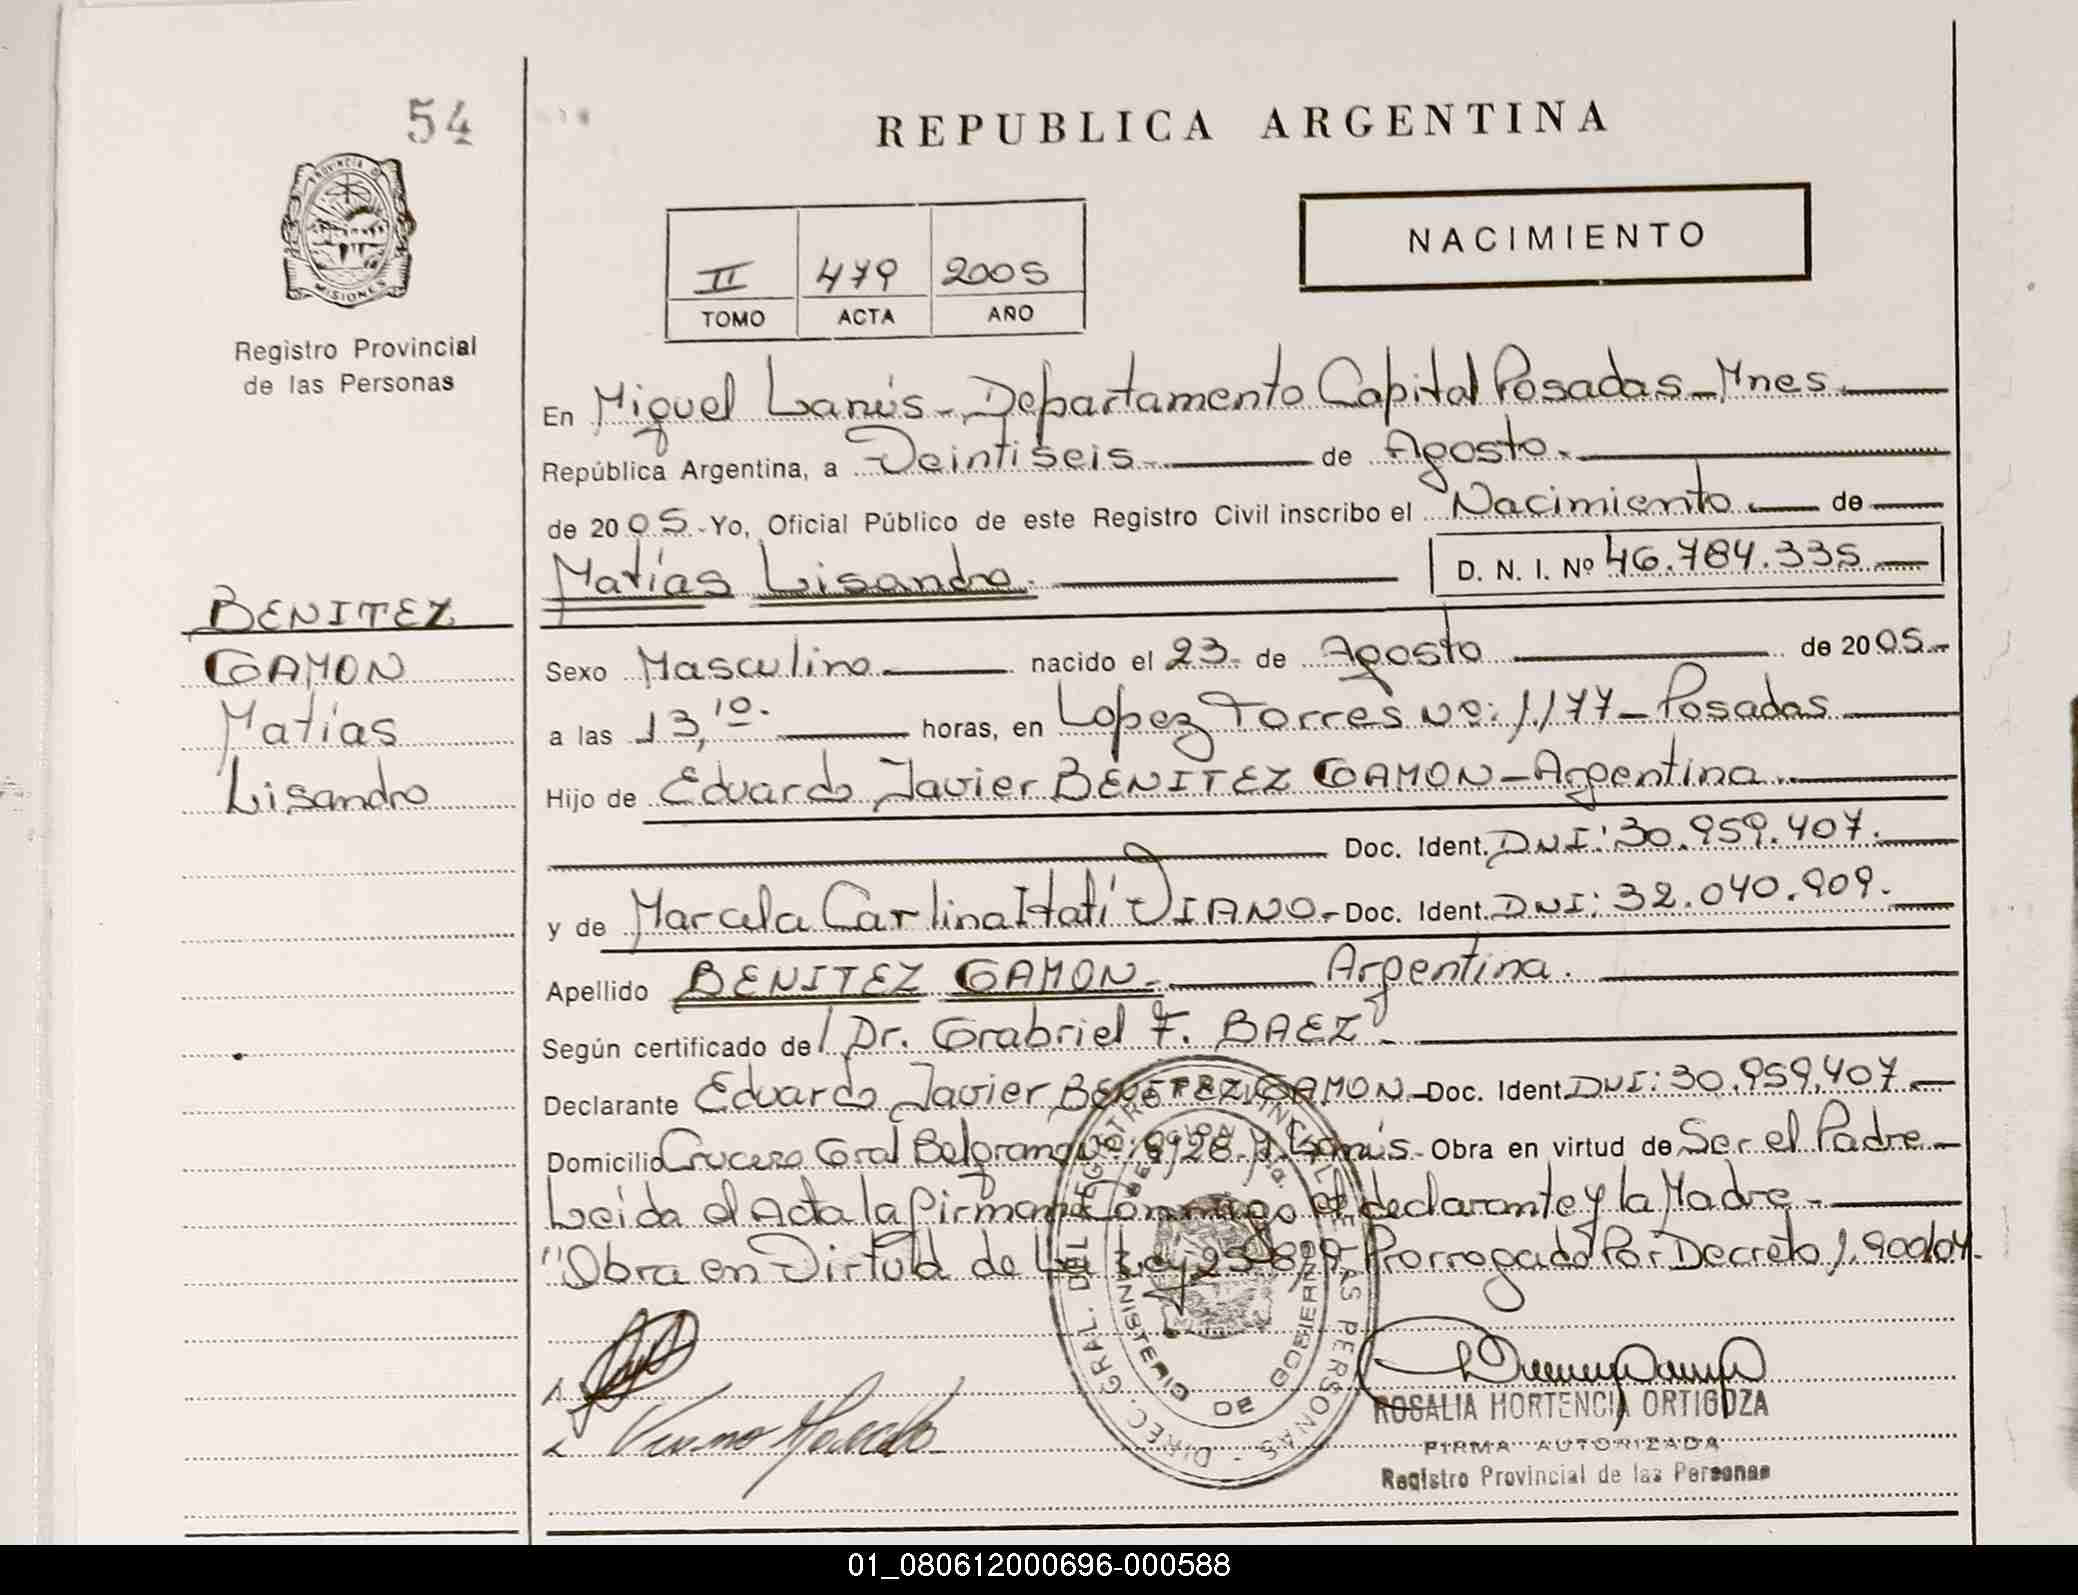 54
REPUBLICA ARGENTINA
PROVINCIA D
MISIONES
Registro Provincial
de las Personas
II 479 2005
TOMO ACTA AÑO
NACIMIENTO
En Miguel Lanús - Departamento Capital Posadas - Mnes.
República Argentina, a Veintiseis. de Agosto.
de 2005.- Yo, Oficial Público de este Registro Civil inscribo el Nacimiento de
Matías Lisandro. D. N. I. Nº 46.784.335
BENITEZ
GAMON
Matías
Lisandro
Sexo Masculino nacido el 23. de Agosto de 2005.-
a las 13,10. horas, en Lopez Torres Nº: 1.177 - Posadas
Hijo de Eduardo Javier BENITEZ GAMON - Argentina.
Doc. Ident. DNI: 30.959.407.
y de Marcela Carlina Itatí VIANO.- Doc. Ident. DNI: 32.040.909.
Apellido BENITEZ GAMON. Argentina.
Según certificado de Dr. Gabriel F. BAEZ.
Declarante Eduardo Javier BENITEZ GAMON - Doc. Ident. DNI: 30.959.407
Domicilio Crucero Gral Belgrano Nº: 9926. M. Lanús - Obra en virtud de Ser el Padre
Leida el Acta la firman Conmigo el declarante y la Madre.-
"Obra en Virtud de La Ley 25.819 Prorrogado Por Decreto 1.900/04.
DIREC. GRAL. DEL REGISTRO PROVINCIAL DE LAS PERSONAS
MINISTERIO DE GOBIERNO
1.
2
ROSALIA HORTENCIA ORTIGOZA
FIRMA AUTORIZADA
Registro Provincial de las Personas
01_080612000696-000588